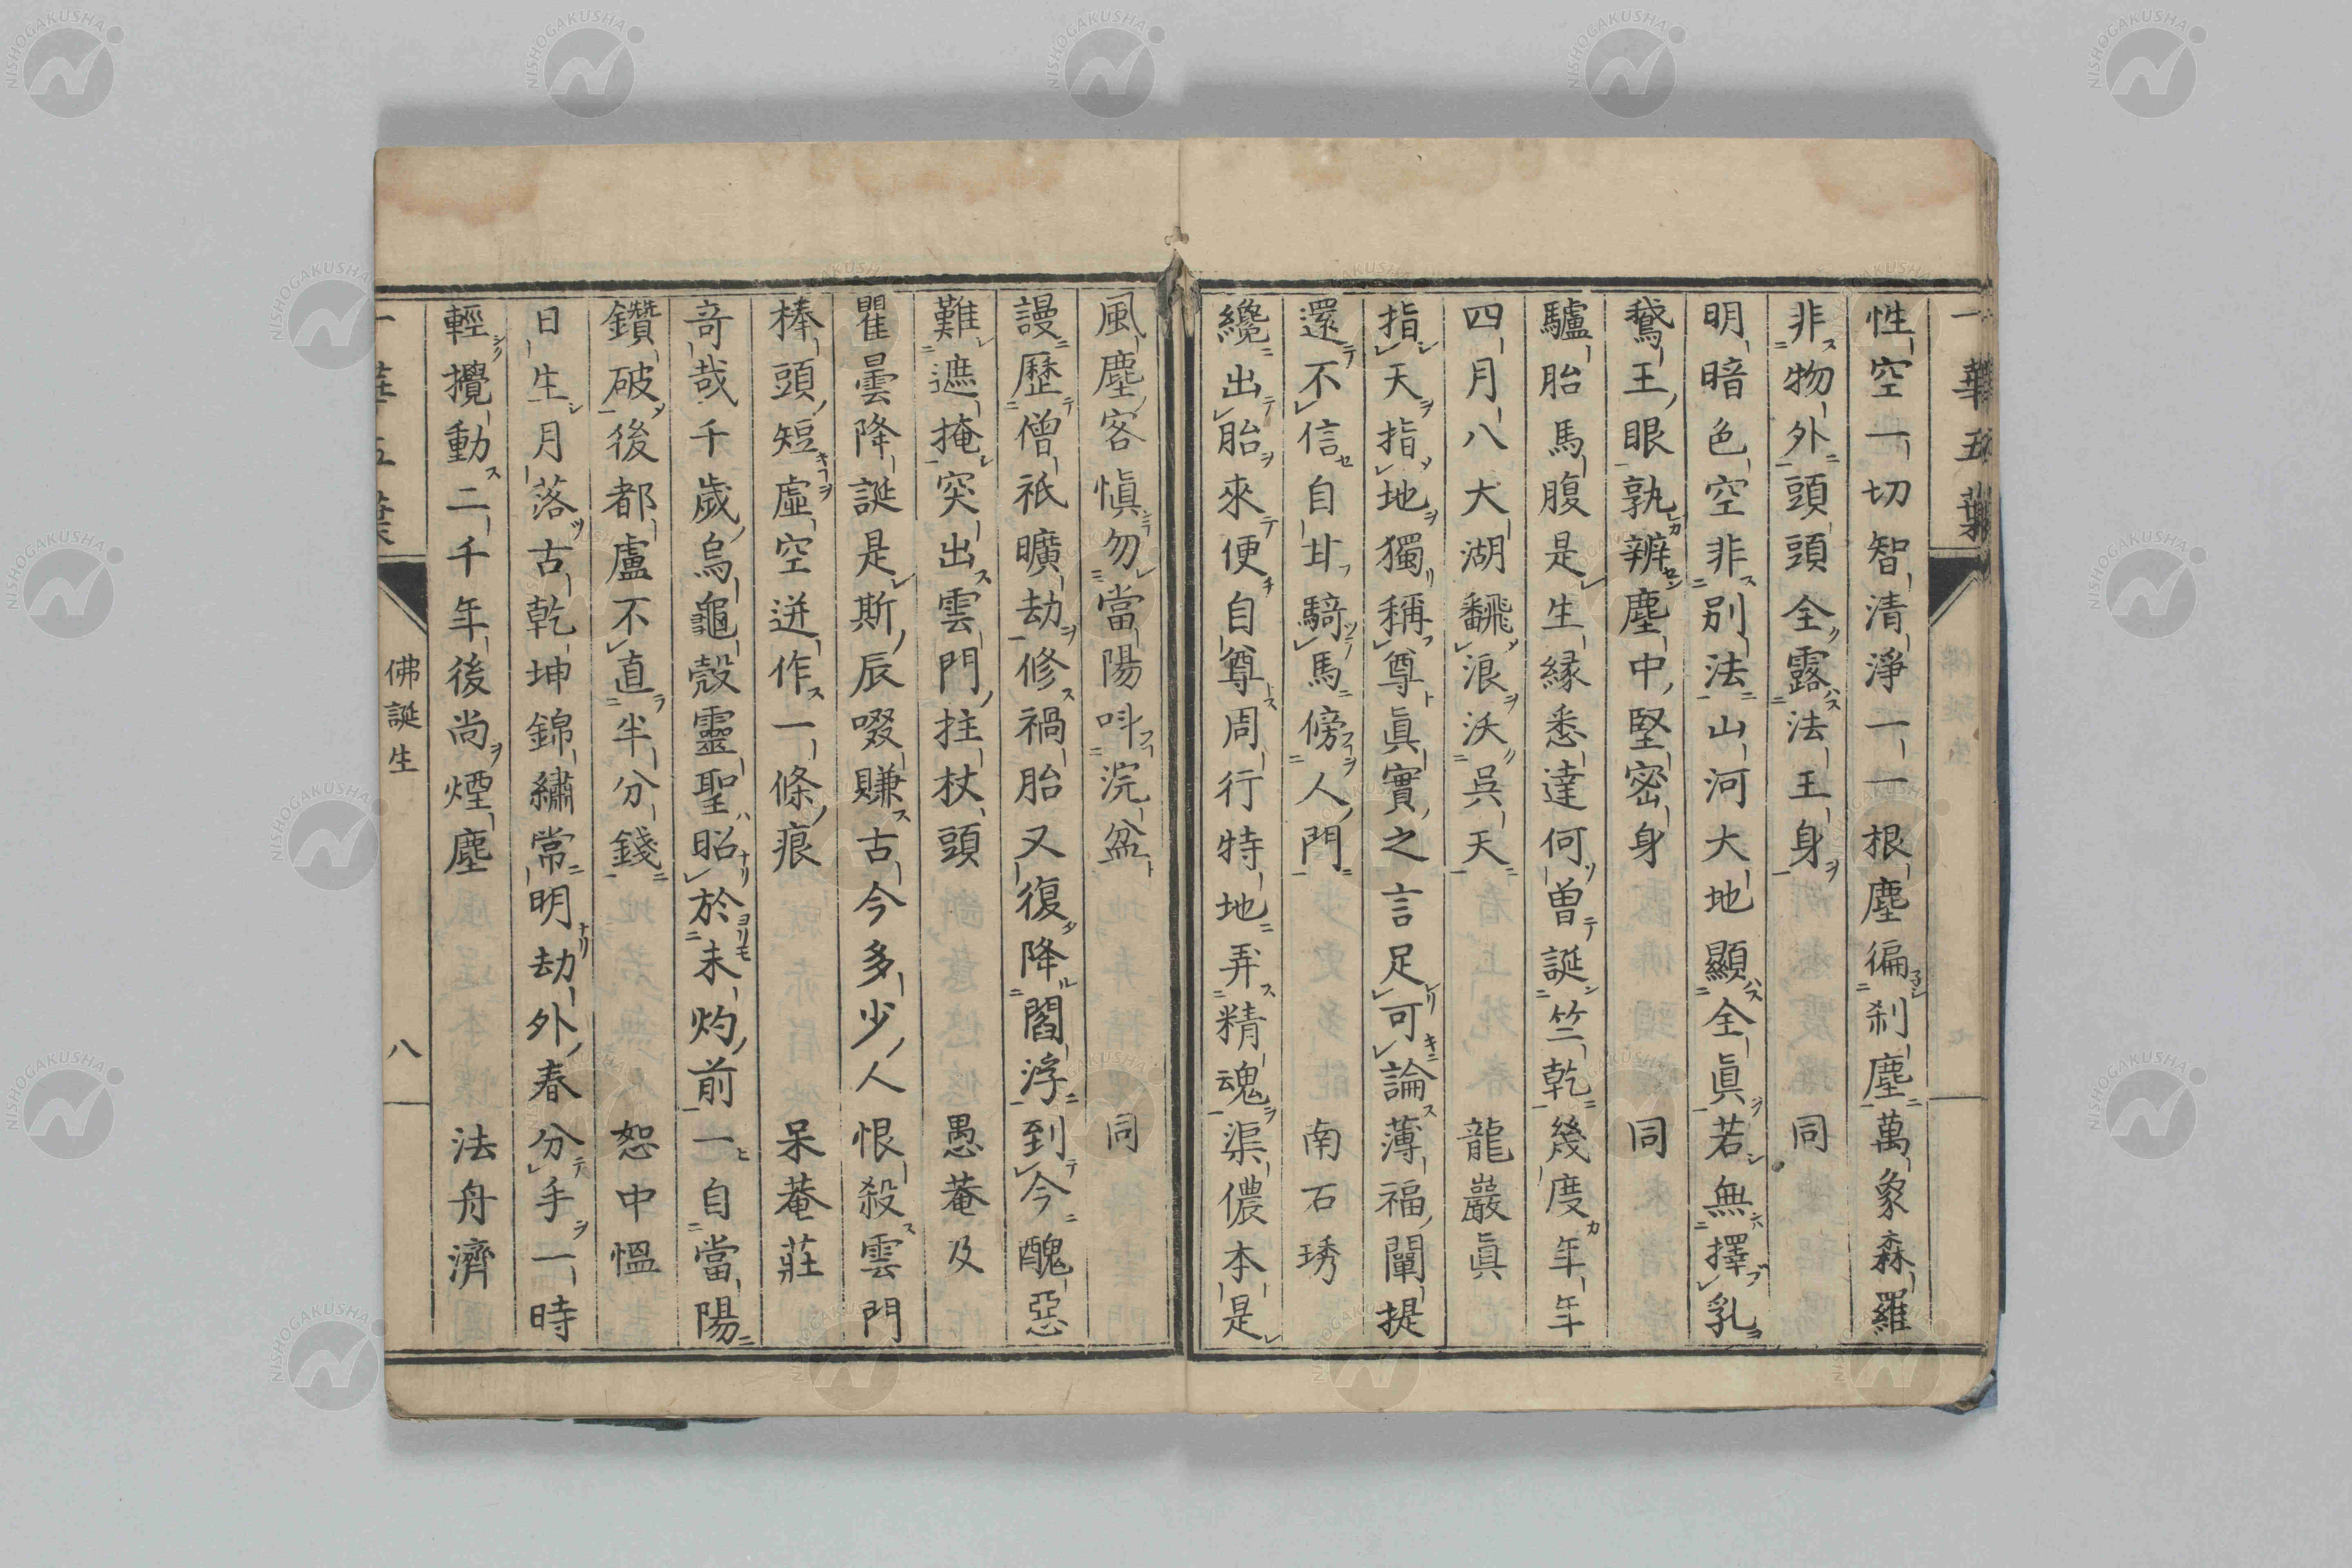 一華五葉
性空一切智清淨一一根塵徧刹塵萬象森羅
非物外頭頭全露法王身 同
明暗色空非別法山河大地顯全眞若無擇乳
鵞王眼孰辨塵中堅密身 同
驢胎馬腹是生縁悉達何曽誕竺乾幾度年年
四月八大湖飜浪沃呉天 龍巖眞
指天指地獨稱尊眞實之言足可論薄福闡提
還不信自甘騎馬傍人門 南石琇
纔出胎來便自尊周行特地弄精魂渠儂本是
風塵客愼勿當陽呌浣盆 同
謾歷僧祇曠劫修禍胎又復降閻浮到今醜惡
難遮掩突出雲門拄杖頭 愚菴及
瞿曇降誕是斯辰啜賺古今多少人恨殺雲門
棒頭短虛空迸作一條痕 呆菴莊
奇哉千歲烏龜殼靈聖昭於未灼前一自當陽
鑽破後都盧不直半分錢 恕中慍
日生月落古乾坤錦繡常明劫外春分手一時
輕攪動二千年後尚煙塵 法舟濟
一華五葉 佛誕生 八
NISHOGAKUSHA